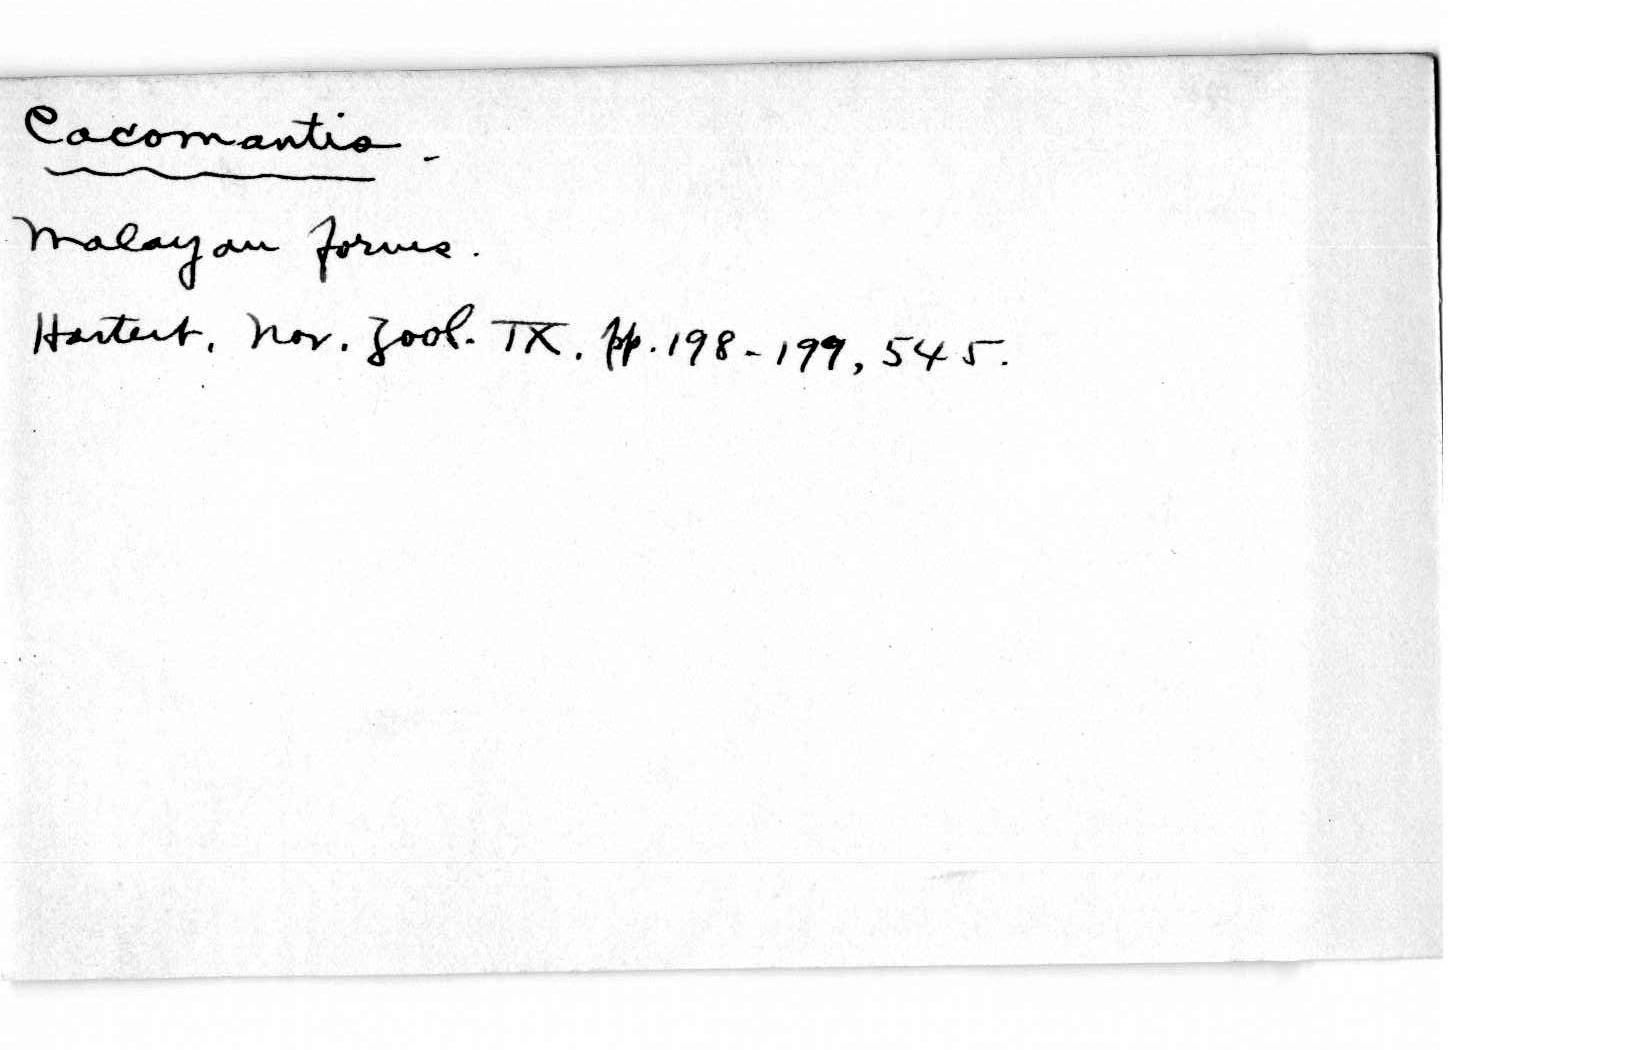 Cacomantis -
Malayan forms.
Hartert, Nov. Zool. IX. pp. 198-199, 545.